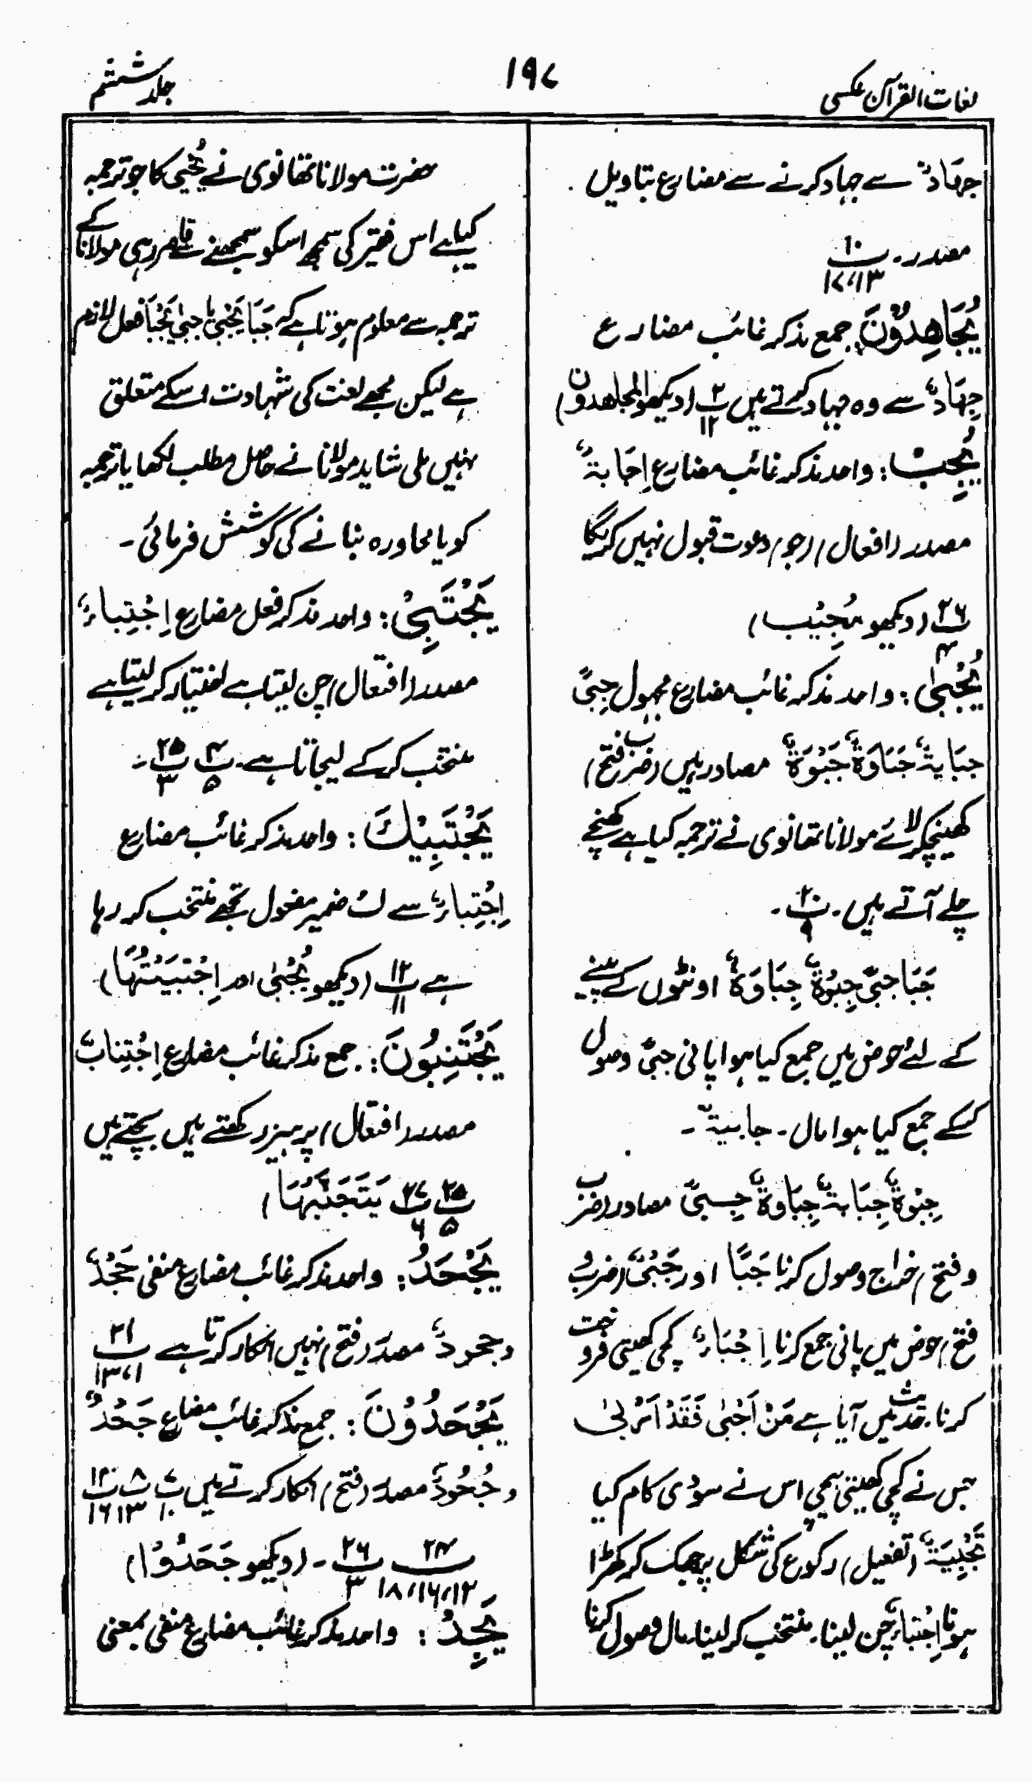 لغات القرآن عکسی
۱۹۷
جلد ششم
جِهَادٌ سے جہاد کرنے سے مضارع بتاویل
مصدر۔ پ۱۰ ۱۳،۱۷
يُجَاهِدُوْنَ: جمع مذکر غائب مضارع
جِهَادٌ سے وہ جہاد کرتے ہیں پ۶ ۱۲ (دیکھو المجاھدون)
يُجِبْ: واحد مذکر غائب مضارع اِجَابَةٌ
مصدر (افعال) (جو) دعوت قبول نہیں کریگا
پ۲۶ ۴ (دیکھو مُجِيْب)
يُجْبٰى: واحد مذکر غائب مضارع مجہول جِبًى
جِبَايَةٌ جَبَاوَةٌ جَبْوَةٌ مصادر ہیں (ضرب فتح)
کھینچکر لائے مولانا تھانوی نے ترجمہ کیا ہے کھنچے
چلے آتے ہیں۔ پ۲۰ ۹۔
جَبَا جِبًى جِبْوَةٌ جِبَاوَةٌ اونٹوں کے پینے
کے لئے حوض میں جمع کیا ہوا پانی جِبًى وصول
کرکے جمع کیا ہوا مال۔ جابيةٌ۔
جِبْوَةٌ جِبَايَةٌ جِبَاوَةٌ جِبًى مصادر (ضرب
و فتح) خراج وصول کرنا جَبًّا اور جَبْىٌ (ضرب و
فتح) حوض میں پانی جمع کرنا اِجْبَاءٌ کچی کھیتی فروخت
کرنا۔ حدیث میں آیا ہے مَنْ اَجْبٰى فَقَدْ اَرْبٰى
جس نے کچی کھیتی بیچی اس نے سودی کام کیا
تَجْبِيَةٌ (تفعیل) رکوع کی شکل پر جھک کر کھڑا
ہونا اِجْتِبَاءٌ چن لینا۔ منتخب کر لینا۔ مال وصول کرنا
حضرت مولانا تھانوی نے يُجْبٰى کا جو ترجمہ
کیا ہے اس فقیر کی سمجھ اسکو سمجھنے سے قاصر رہی مولانا کے
ترجمہ سے معلوم ہوتا ہے کہ جَبَا يَجْبِىْ یا جبٰى يَجْبَا فعل لازم
ہے لیکن مجھے لغت کی شہادت اسکے متعلق
نہیں ملی شاید مولانا نے حاصل مطلب لکھا یا ترجمہ
کو بامحاورہ بنانے کی کوشش فرمائی۔
يَجْتَبِىْ: واحد مذکر فعل مضارع اِجْتِبَاءٌ
مصدر (افتعال) چن لیتا ہے اختیار کر لیتا ہے
منتخب کرکے لیجاتا ہے۔ پ۴ ۵ پ۲۵ ۳۔
يَجْتَبِيْكَ: واحد مذکر غائب مضارع
اِجْتِبَاءٌ سے كَ ضمیر مفعول تجھے منتخب کر رہا
ہے پ۱۲ ۱۱ (دیکھو يُجْبٰى اور اِجْتَبَيْتَهَا)
يَجْتَنِبُوْنَ: جمع مذکر غائب مضارع اِجْتِنَابٌ
مصدر (افتعال) پرہیز رکھتے ہیں بچتے ہیں
پ۲۵ ۵ پ۲۷ ۶ يَتَجَنَّبُهَا)
يَجْحَدُ: واحد مذکر غائب مضارع منفی جَحْدٌ
وجحودٌ مصدر (فتح) نہیں انکار کرتا ہے پ۲۱ ۱،۱۳
يَجْحَدُوْنَ: جمع مذکر غائب مضارع جَحْدٌ
وجُحُودٌ مصدر (فتح) انکار کرتے ہیں پ۷ ۱۰ پ۸ ۱۳ پ۱۴ ۱۶
پ۲۴ ۱۲،۱۶،۱۸ پ۲۶ ۳۔ (دیکھو جَحَدُوْا)
يَجِدُ: واحد مذکر غائب مضارع منفی بمعنی